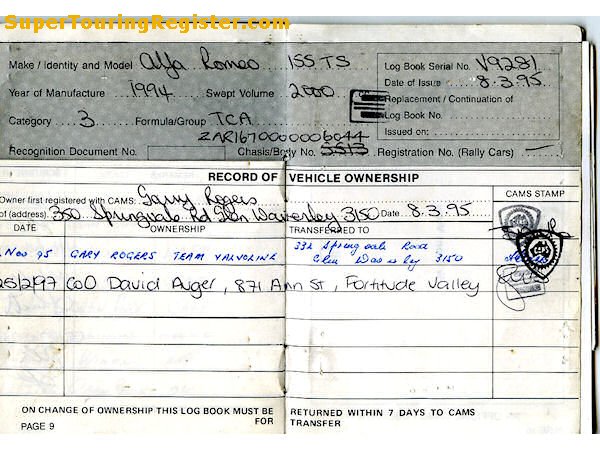 SuperTouringRegister.com
Make / Identity and Model Alfa Romeo 155 TS Log Book Serial No. V9281
Date of Issue 8.3.95
Year of Manufacture 1994 Swept Volume 2000 Replacement / Continuation of
Category 3 Formula/Group TCA Log Book No.
ZAR16700000006044 Issued on:
Recognition Document No. Chasis/Body No. 5513 Registration No. (Rally Cars) —
RECORD OF VEHICLE OWNERSHIP
Owner first registered with CAMS: Garry Rogers CAMS STAMP
of (address). 350 Springvale Rd Glen Waverley 3150 Date 8.3.95
DATE OWNERSHIP TRANSFERRED TO
Nov 95 GARY ROGERS TEAM VALVOLINE 332 Springvale Road
Glen Waverley 3150
25/2/97 C/O David Auger, 871 Ann St, Fortitude Valley
ON CHANGE OF OWNERSHIP THIS LOG BOOK MUST BE RETURNED WITHIN 7 DAYS TO CAMS
FOR TRANSFER
PAGE 9